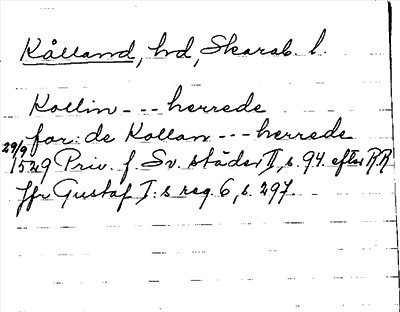 Kålland, hd, Skarab. l.
Kollin - - - herrede
for: de Kollan - - - herrede
29/9
1529 Priv. f. Sv. städer II, s. 94. efter RR
Jfr Gustaf I:s reg. 6, s. 297.